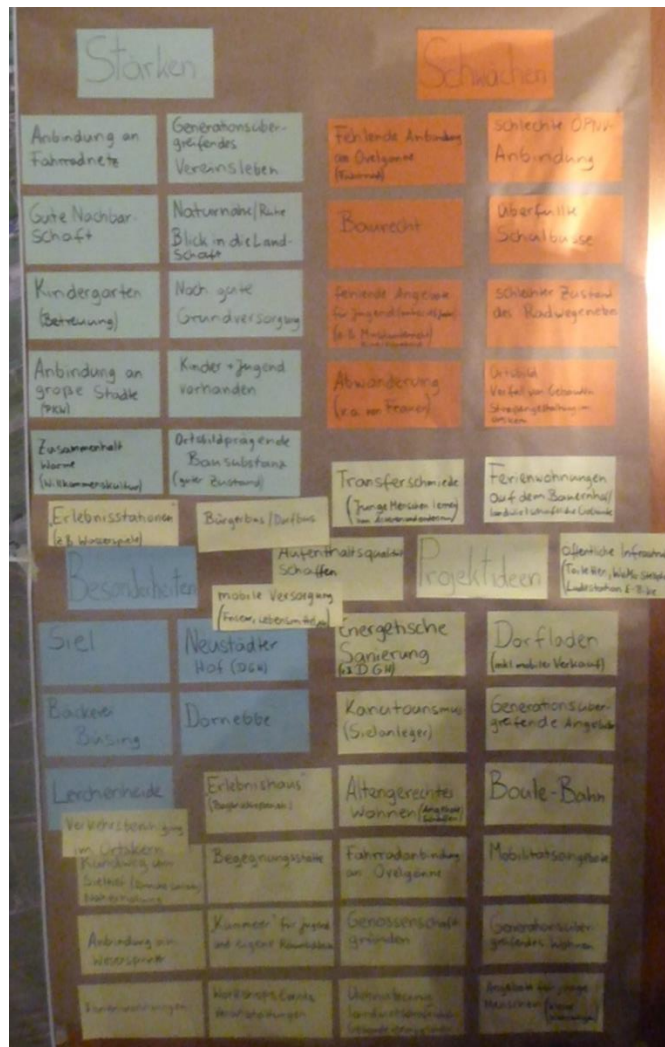 Stärken
Anbindung an
Fahrradnetz
Generationsüber-
greifendes
Vereinsleben
Gute Nachbar-
schaft
Naturnähe/Ruhe
Blick in die Land-
schaft
Kindergarten
(Betreuung)
Noch gute
Grundversorgung
Anbindung an
große Städte
(PKW)
Kinder + Jugend
vorhanden
Zusammenhalt
Wärme
(Willkommenskultur)
Ortsbildprägende
Bausubstanz
(guter Zustand)
Schwächen
Fehlende Anbindung
an Ovelgönne
(Fahrrad)
schlechte ÖPNV
Anbindung
Baurecht
überfüllte
Schulbusse
fehlende Angebote
für Jugend
schlechter Zustand
des Radwegenetzes
Abwanderung
(v.a. von Frauen)
Ortsbild
Verfall von Gebäuden
Straßengestaltung im
Transferschmiede
(Junge Menschen lernen
Ferienwohnungen
auf dem Bauernhof/
landwirtschaftliche Gebäude
"Erlebnisstationen"
(z.B. Wasserspiele)
Bürgerbus/Dorfbus
Aufenthaltsqualität
schaffen
öffentliche Infrastru
Ladestation E-Bike
mobile Versorgung
Besonderheiten
Siel
Neustädter
Hof (DGH)
Bäckerei
Büsing
Dornebbe
Lerchenheide
Projektideen
Energetische
Sanierung
(z.B. DGH)
Dorfladen
(inkl. mobiler Verkauf)
Kanutourismus
(Sielanleger)
Generationsüber-
greifende Angebote
"Erlebnishaus"
Altengerechtes
Wohnen (Angebote
schaffen)
Boule-Bahn
Verkehrsberuhigung
im Ortskern
Rundweg um
Sieltief
Naherholung
Begegnungsstätte
Fahrradanbindung
an Ovelgönne
Mobilitätsangebote
Anbindung an
Weserfähre
für Jugend
und eigene
Genossenschaft
gründen
Generationsüber-
greifendes Wohnen
Workshops Events
Veranstaltungen
Umnutzung
Angebote für junge
Menschen